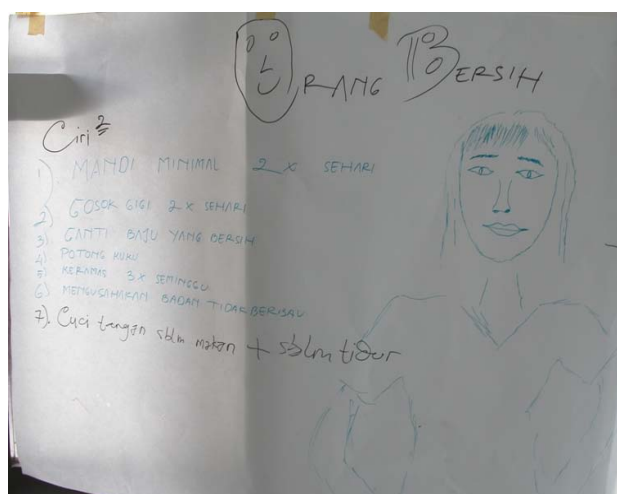 ORANG BERSIH
Ciri²
1). MANDI MINIMAL 2 x SEHARI
2) GOSOK GIGI 2 x SEHARI
3) GANTI BAJU YANG BERSIH
4) POTONG KUKU
5) KERAMAS 3 x SEMINGGU
6) MENGUSAHAKAN BADAN TIDAK BERBAU
7). Cuci tangan sblm makan + sblm tidur